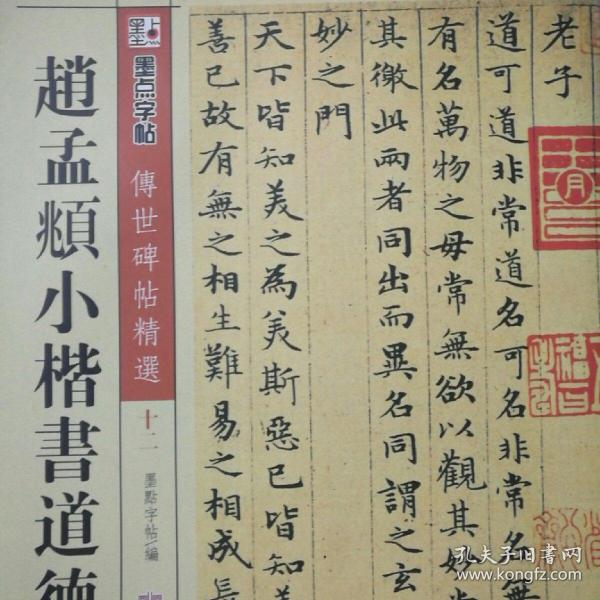 趙孟頫小楷書道德
墨点
墨点字帖
傳世碑帖精選
十二
墨點字帖/編
老子
道可道非常道名可名非常名無
有名萬物之母常無欲以觀其妙常
其徼此兩者同出而異名同謂之玄
妙之門
天下皆知美之為美斯惡已皆知
善已故有無之相生難易之相成長
孔夫子旧書网
www.kongfz.com